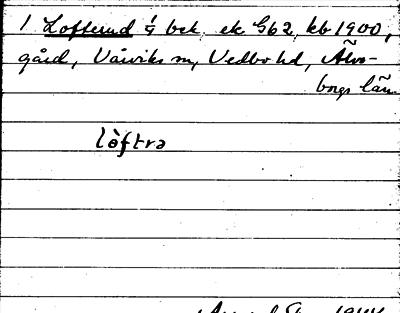 1 Lofterud ¼ bek. ek G62, kb 1900,
gård, Vårviks sn, Vedbo hd, Älvs-
borgs län
lòftrə